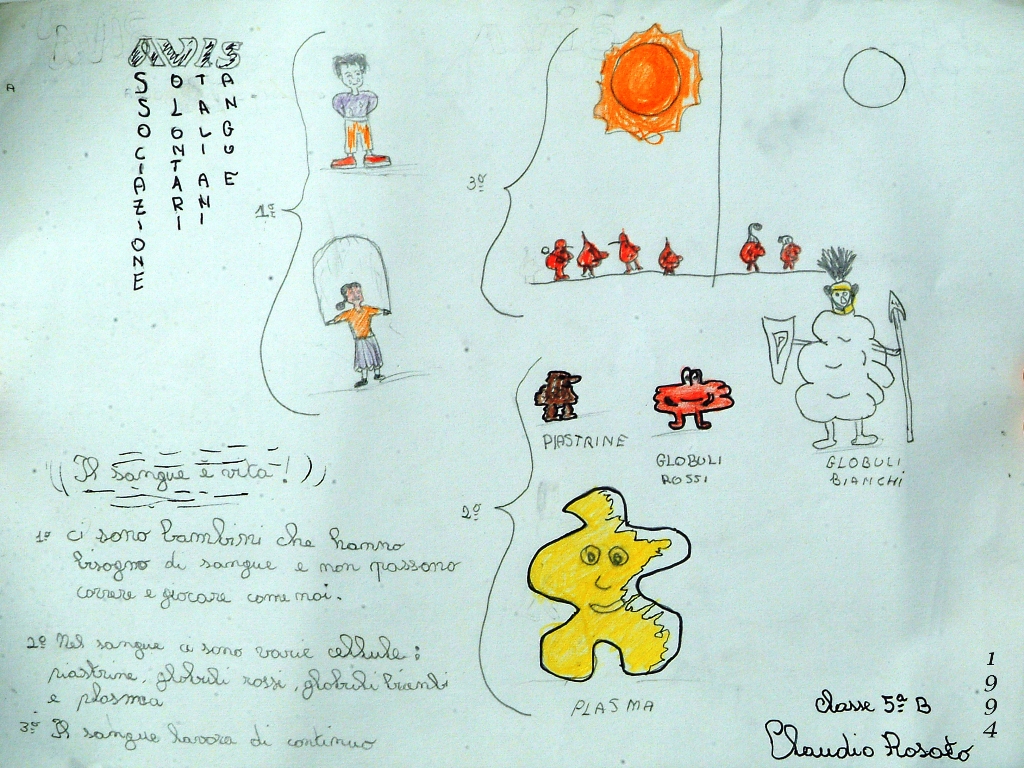 AVIS
ASSOCIAZIONE
VOLONTARI
ITALIANI
SANGUE
1º
3º
PIASTRINE
GLOBULI
ROSSI
GLOBULI
BIANCHI
2º
PLASMA
Il sangue è vita!
1º ci sono bambini che hanno
bisogno di sangue e non possono
correre e giocare come noi.
2º Nel sangue ci sono varie cellule:
piastrine, globuli rossi, globuli bianchi
e plasma
3º Il sangue lavora di continuo
Classe 5ª B
Claudio Rosato
1994